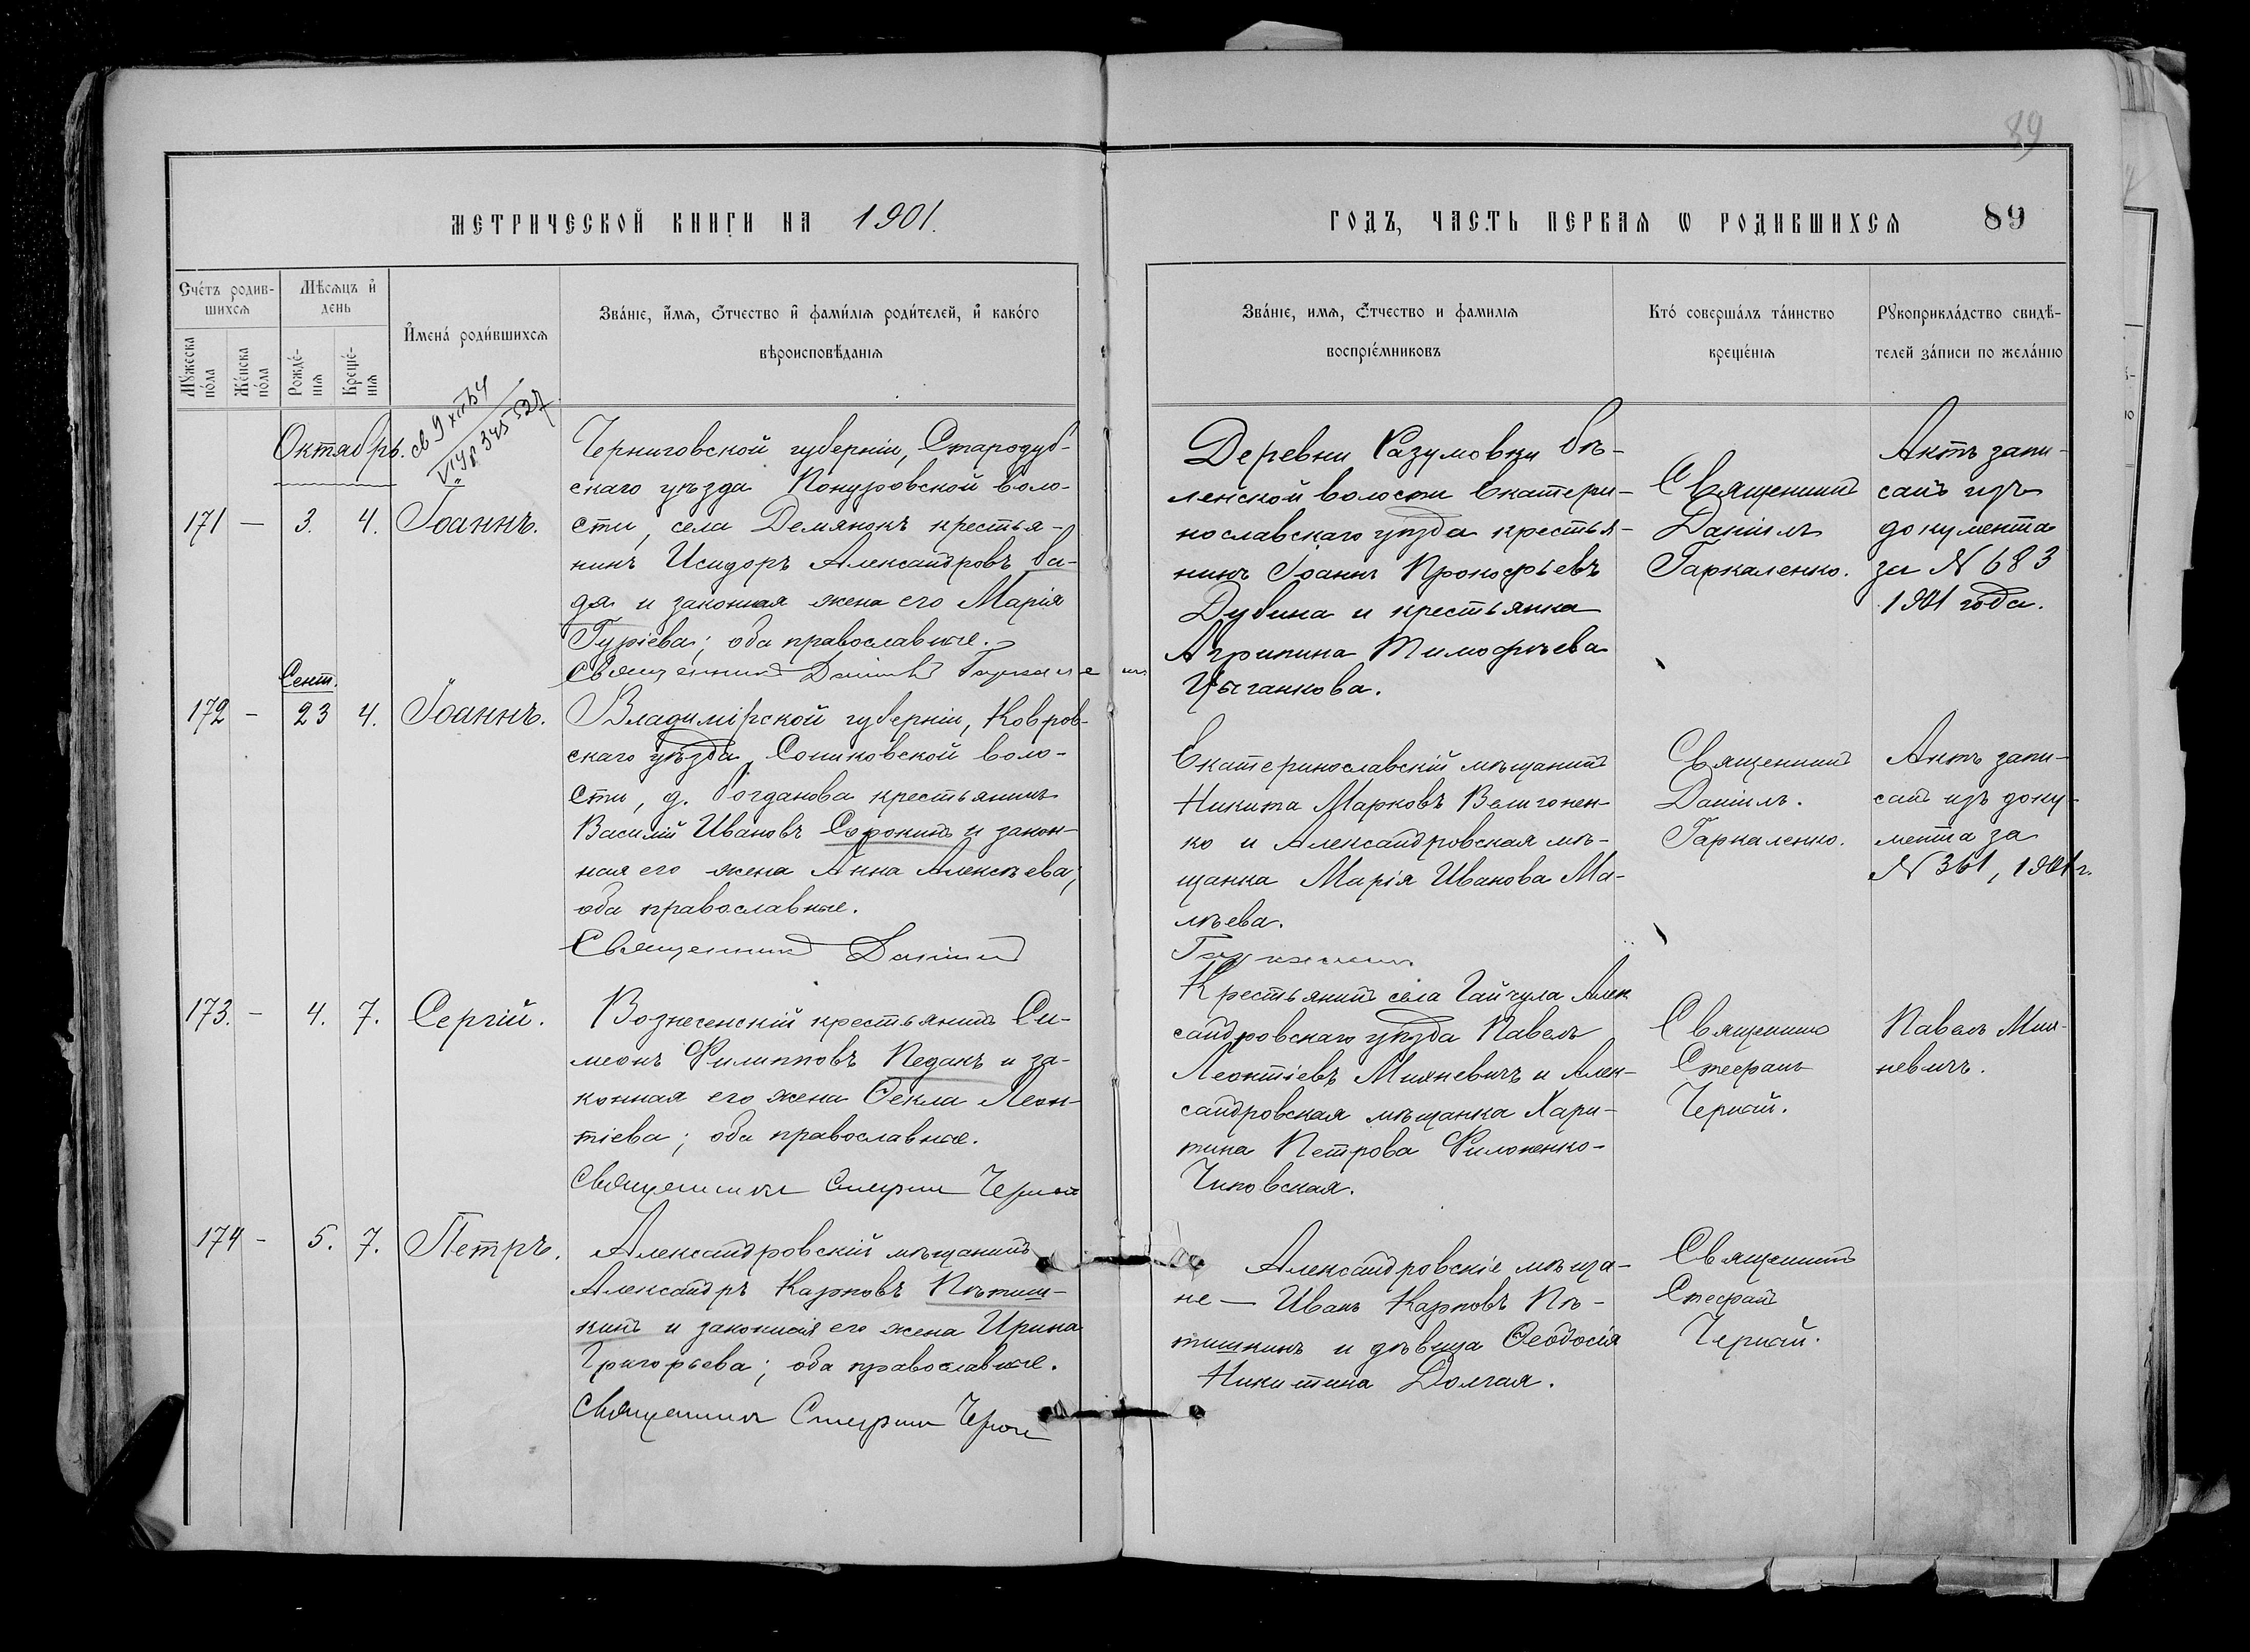 89
МЕТРИЧЕСКОЙ КНИГИ НА 1901.
ГОДЪ, ЧАСТЬ ПЕРВАЯ Ѡ РОДИВШИХСЯ 89
Счетъ родив-
шихся
Мѣсяцъ и
день
Мужеска
пола
Женска
пола
Рожде-
нія
Креще-
нія
Имена родившихся
Званіе, имя, отчество и фамилія родителей, и какого
вѣроисповѣданія
Званіе, имя, отчество и фамилія
воспріемниковъ
Кто совершалъ таинство
крещенія
Рукоприкладство свидѣ-
телей записи по желанію
Октябрь.
171 — 3. 4. Іоаннъ.
Черниговской губерніи, Стародуб-
скаго уѣзда Понуровской воло-
сти, села Демянокъ крестья-
нинъ Исидоръ Александровъ Ба-
дя и законная жена его Марія
Гуріева; оба православные.
Священникъ Даніилъ
Деревни Разумовки Бѣ-
ленской волости Екатери-
нославскаго уѣзда крестья-
нинъ Іоаннъ Прокофьевъ
Дубина и крестьянка
Агрипина Тимофѣева
Цыганкова.
Священникъ
Даніилъ
Гаркаленко.
Актъ запи-
санъ изъ
документа
за № 683
1901 года.
Сент.
172 — 23 4. Іоаннъ.
Владимірской губерніи, Ковров-
скаго уѣзда, Санниковской воло-
сти, д. Богданова крестьянинъ
Василій Ивановъ Сорокинъ и закон-
ная его жена Анна Алексѣева;
оба православные.
Священникъ Даніилъ
Екатеринославскій мѣщанинъ
Никита Марковъ Велигонен-
ко и Александровская мѣ-
щанка Марія Иванова Ма-
лѣева.
Священникъ
Даніилъ.
Гаркаленко.
Актъ запи-
санъ изъ доку-
мента за
№ 361, 1901 г.
173. — 4. 7. Сергій.
Вознесенскій крестьянинъ Си-
меонъ Филипповъ Педакъ и за-
конная его жена Ѳекла Леон-
тіева; оба православные.
Священникъ Стефанъ Черный
Крестьянинъ села Гайчула Алек
сандровскаго уѣзда Павелъ
Леонтіевъ Михневичъ и Алек-
сандровская мѣщанка Хари-
тина Петрова Филоненко-
Чиковская.
Священникъ
Стефанъ
Черный.
Павелъ Мих-
невичъ.
174 — 5. 7. Петръ.
Александровскій мѣщанинъ
Александръ Карповъ Пѣтиш-
кинъ и законная его жена Ирина
Григорьева; оба православные.
Священникъ Стефанъ Черный
Александровскіе мѣща-
не — Иванъ Карповъ Пѣ-
тишкинъ и дѣвица Ѳеодосія
Никитина Долгая.
Священникъ
Стефанъ
Черный.